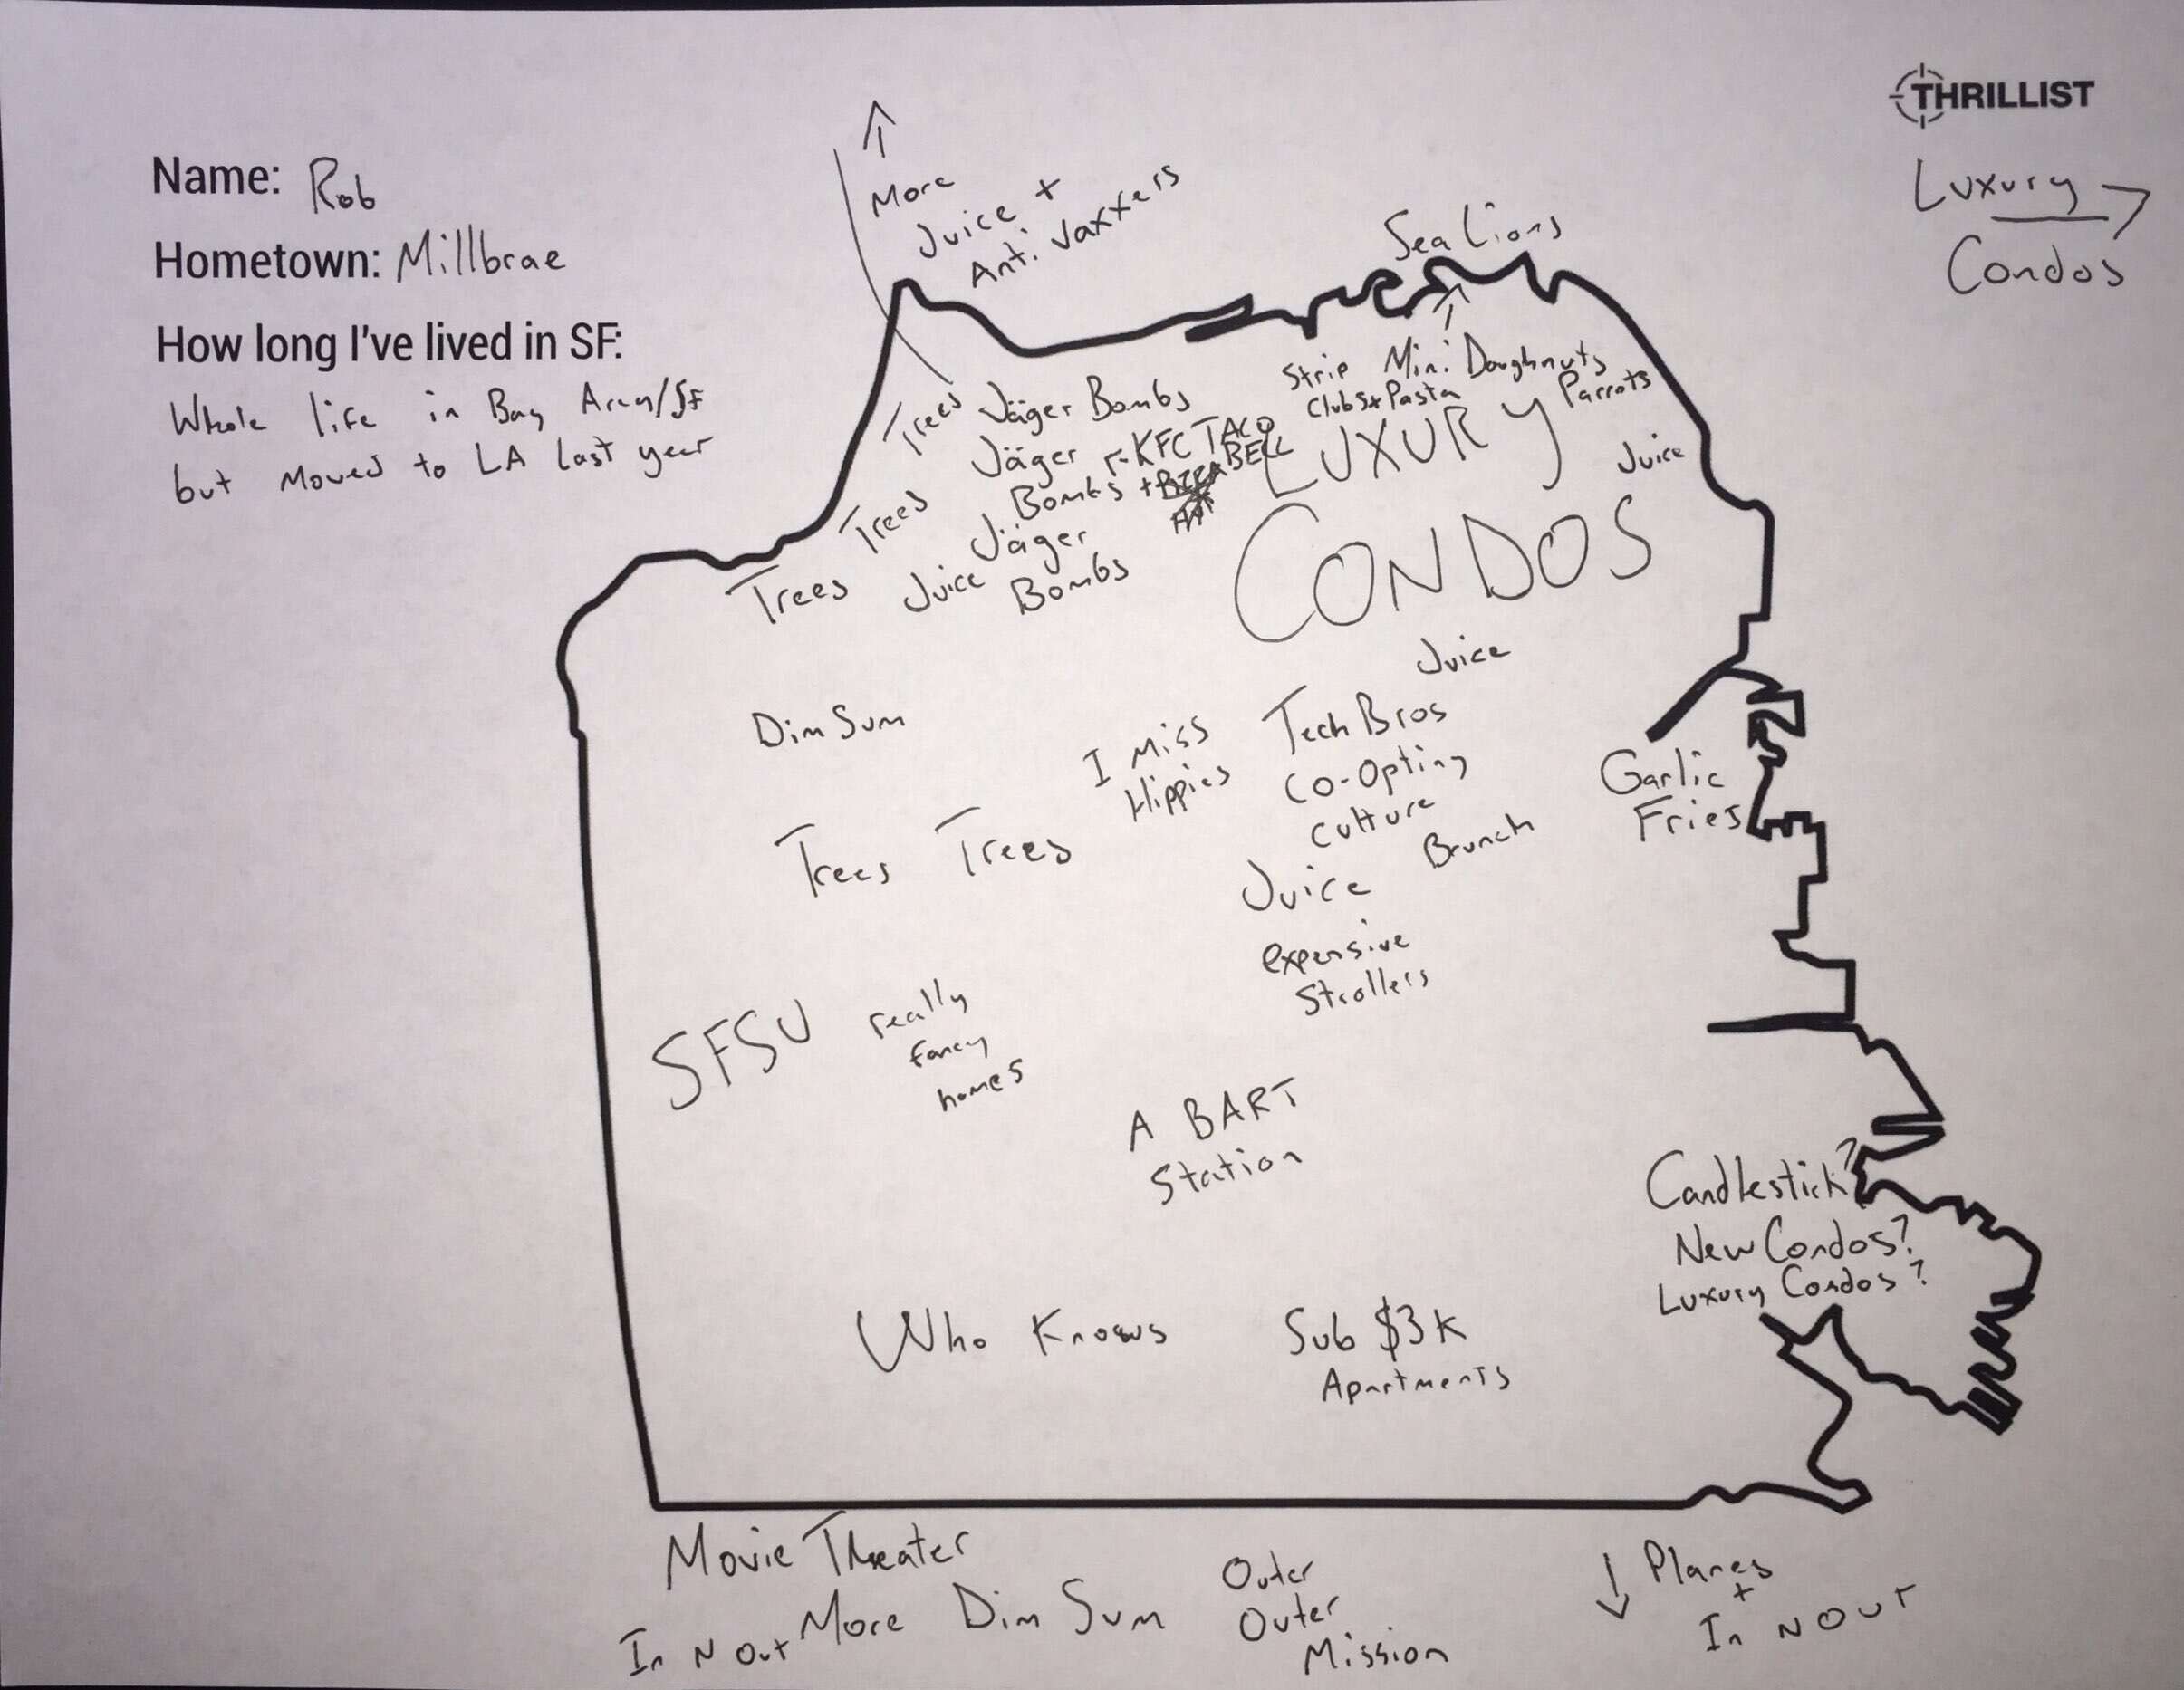 THRILLIST
Luxury
Condos
Name: Rob
Hometown: Millbrae
How long I've lived in SF:
Whole life in Bay Area/SF
but moved to LA last year
More
Juice +
Anti Vaxxers
Sea Lions
Strip Mini Doughnuts
Clubs + Pasta Parrots
Trees Jäger Bombs
Jäger KFC TACO
Bombs + BELL
LUXURY
Juice
CONDOS
Trees
Jäger
Trees Juice Bombs
Juice
Dim Sum
I Miss
Hippies
Tech Bros
Co-Opting
Culture
Brunch
Garlic
Fries
Trees Trees
Juice
expensive
Strollers
SFSU
really
fancy
homes
A BART
Station
Candlestick?
New Condos?
Luxury Condos?
Who Knows
Sub $3K
Apartments
Movie Theater
In N Out More Dim Sum
Outer
Outer
Mission
Planes
+
In N OUT